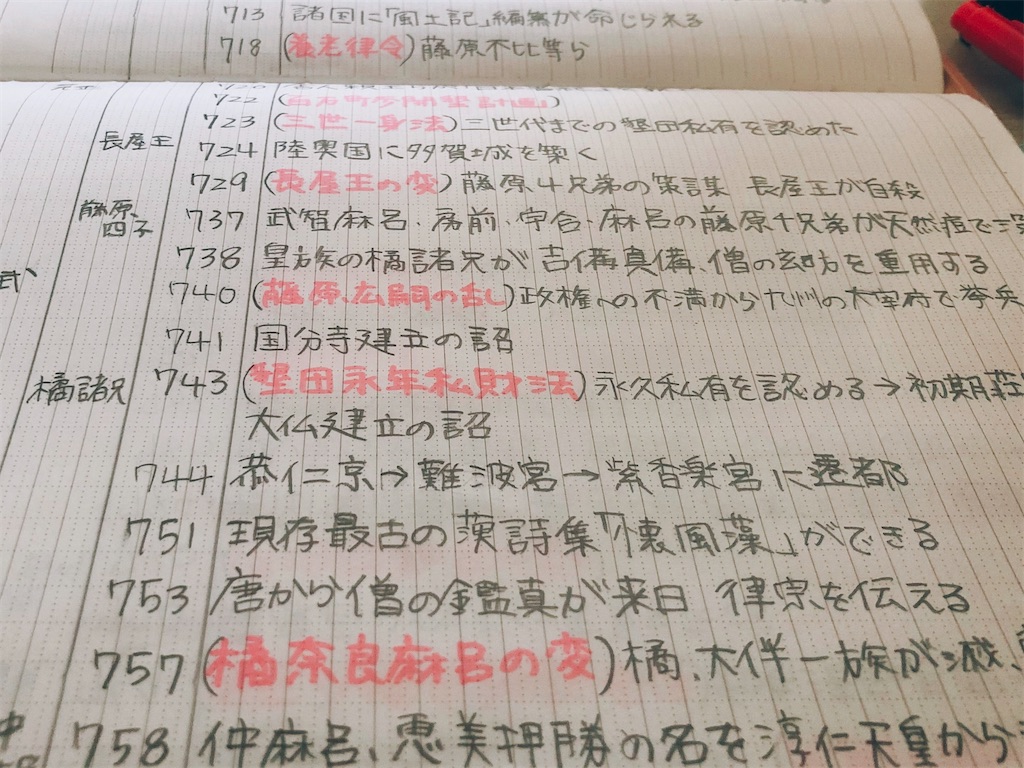 713 諸国に「風土記」編集が命じられる
718 (養老律令) 藤原不比等ら
722 (百万町歩開墾計画)
723 (三世一身法) 三世代までの墾田私有を認めた
長屋王 724 陸奥国に多賀城を築く
729 (長屋王の変) 藤原4兄弟の策謀 長屋王が自殺
藤原四子 737 武智麻呂、房前、宇合、麻呂の藤原4兄弟が天然痘で
738 皇族の橘諸兄が吉備真備、僧の玄昉を重用する
740 (藤原広嗣の乱) 政権への不満から九州の大宰府で挙兵
741 国分寺建立の詔
橘諸兄 743 (墾田永年私財法) 永久私有を認める→初期荘
大仏建立の詔
744 恭仁京→難波宮→紫香楽宮に遷都
751 現存最古の漢詩集「懐風藻」ができる
753 唐から僧の鑑真が来日 律宗を伝える
757 (橘奈良麻呂の変) 橘、大伴一族が滅
758 仲麻呂、恵美押勝の名を淳仁天皇から